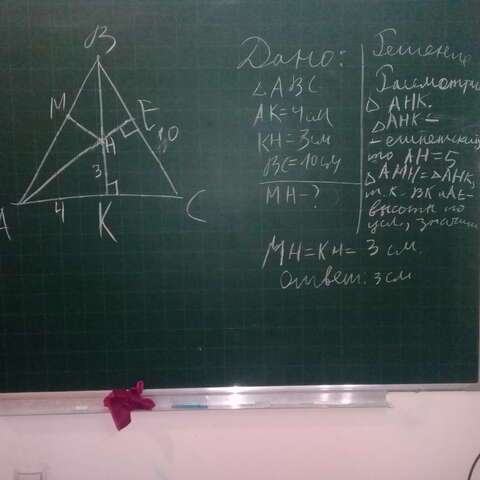 B
M
E
H
10
3
A
4
K
C
Дано:
△ABC
AK=4см
KH=3см
BC=10см
MH-?
Решение
Рассмотрим
△AHK.
△AHK-
-египетский,
то AH=5
△AMH=△AHK,
т.к-BK и AE-
высоты по
усл, значит
MH=KH= 3 см.
Ответ: 3см